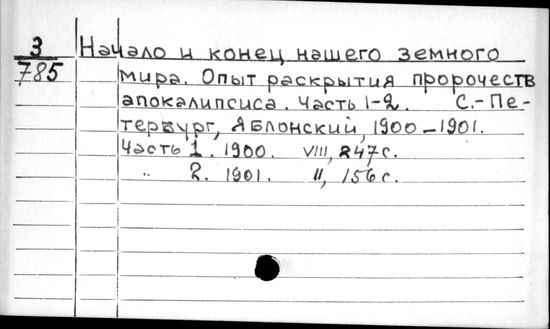 3 Начало и конец нашего земного
785 мира. Опыт раскрытия пророчеств
апокалипсиса. Часть 1-2. С.-Пе-
тербург, Яблонский, 1900-1901.
Часть 1. 1900. VIII, 247 с.
" 2. 1901. II, 156 с.